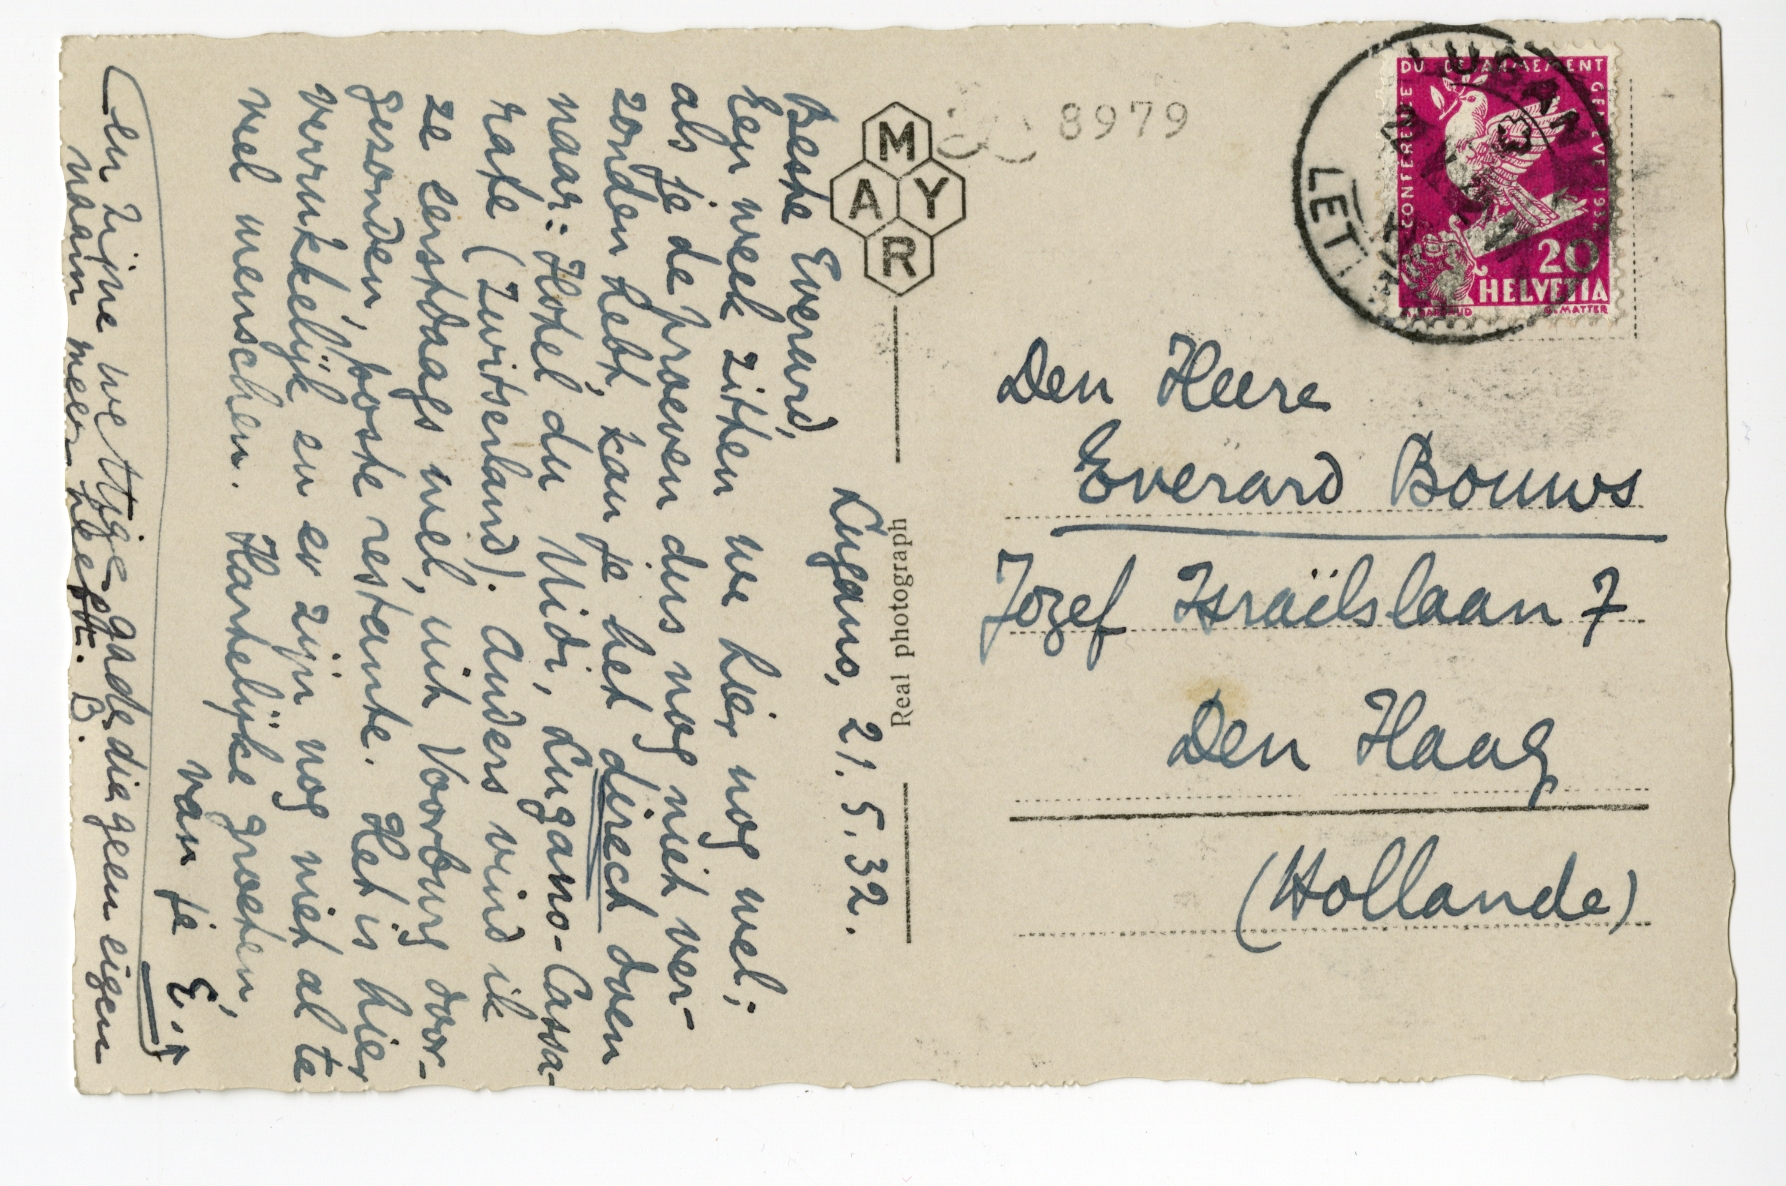 Lugano, 21.5.32.
Beste Everard,
Een week zitten we hier nog wel;
als je de proeven dus nog niet ver-
zonden hebt, kan je het direct doen
naar: Hotel du Midi, Lugano-Cassa-
rate (Zwitserland). Anders vind ik
ze eerstdaags wel, uit Voorburg door-
gezonden, poste restante. Het is hier
verrukkelijk en er zijn nog niet al te
veel menschen. Hartelijke groeten,
van je E.
en zijne wettige gade die geen eigen
naam meer heeft. B.
MAYR
Real photograph
8979
CONFERENCE DU DESARMEMENT GENEVE 1932
20
HELVETIA
LUGANO
LETT
Den Heere
Everard Bouws
Jozef Israëlslaan 7
Den Haag
(Hollande)